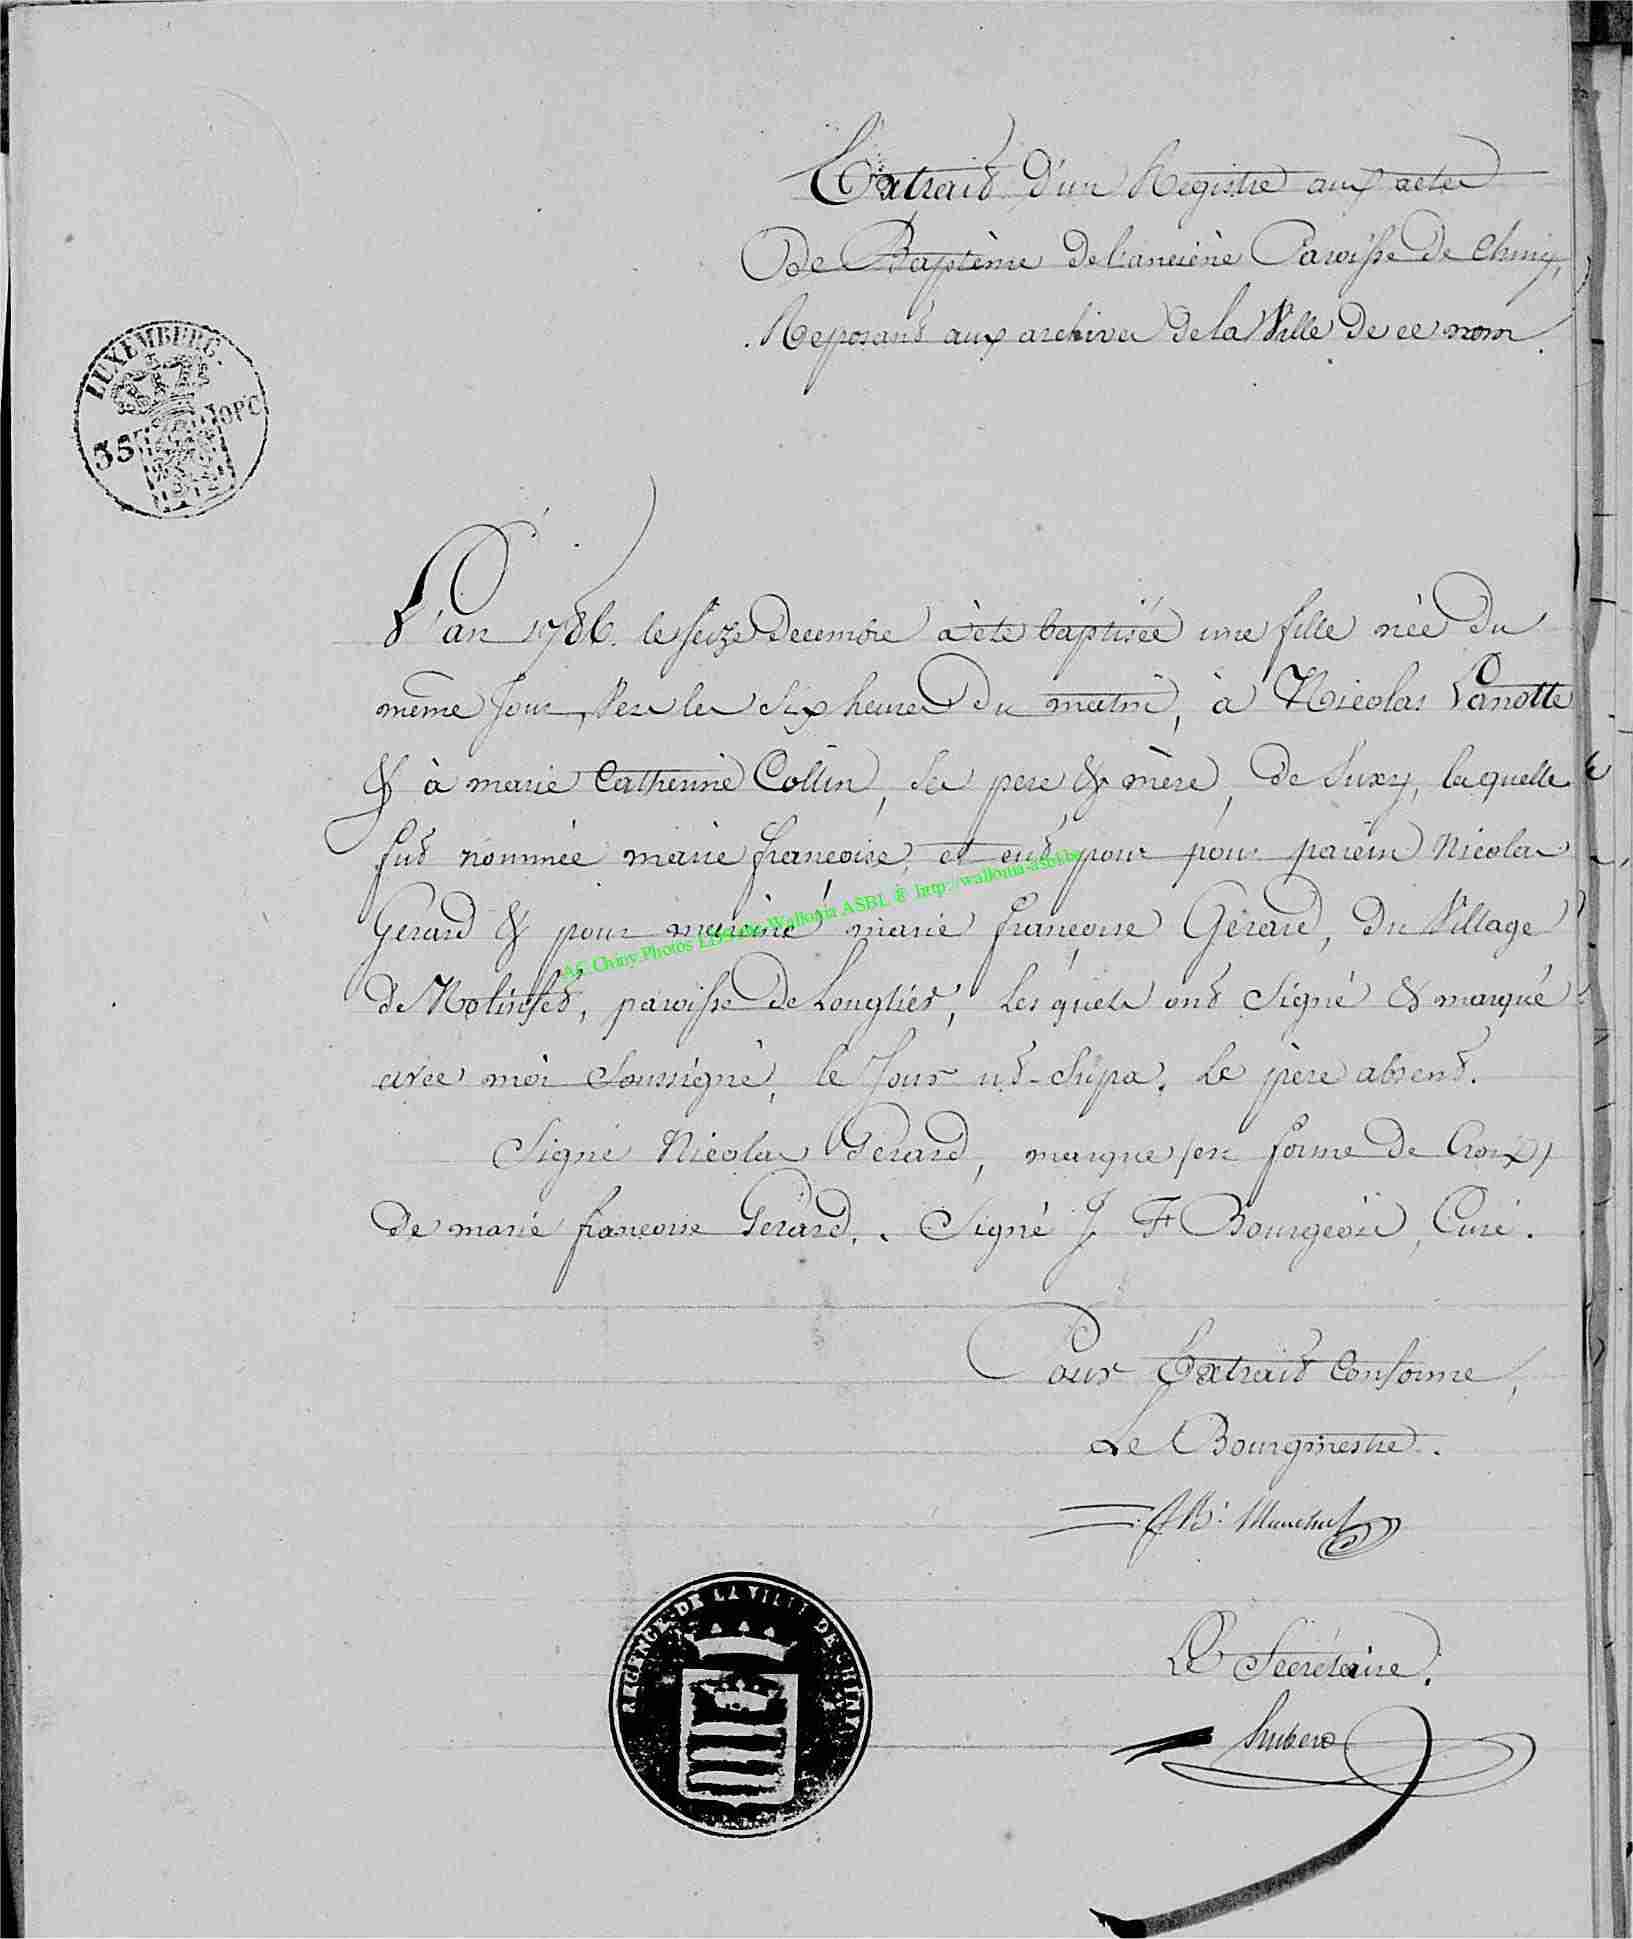 Extrait d'un Registre aux actes
De Baptême de l'anciène Paroisse de Chiny,
Reposant aux archives de la Ville de ce nom.
LUXEMBURG.
35
10PC
L'an 1786. le seize Decembre à èté baptisée une fille née du
même Jour, Vers les Six heures du matin, à Nicolas Lanotte
& à marie Catherine Collin, ses pere & mère, de Suxy, laquelle
fut nommée marie françoise, et eut pour pour parein Nicolas
Gerard & pour mareine marie françoise Gérard, du Village
de Molinfet, paroisse de Longlier, Lesquels ont Signé & marqué
avec moi Soussigné, le Jour ut-supra. Le père absent.
AC Chiny Photos LDS de Wallonia ASBL ® http://wallonia-asbl.be
Signé Nicolas Gerard, marque (en forme de Croix)
de marie françoise Gérard. Signé J F Bourgeois, Curé.
Pour Extrait Conforme,
Le Bourgmestre.
REGENCE DE LA VILLE DE CHINY
Le Secrétaire.
Hubert